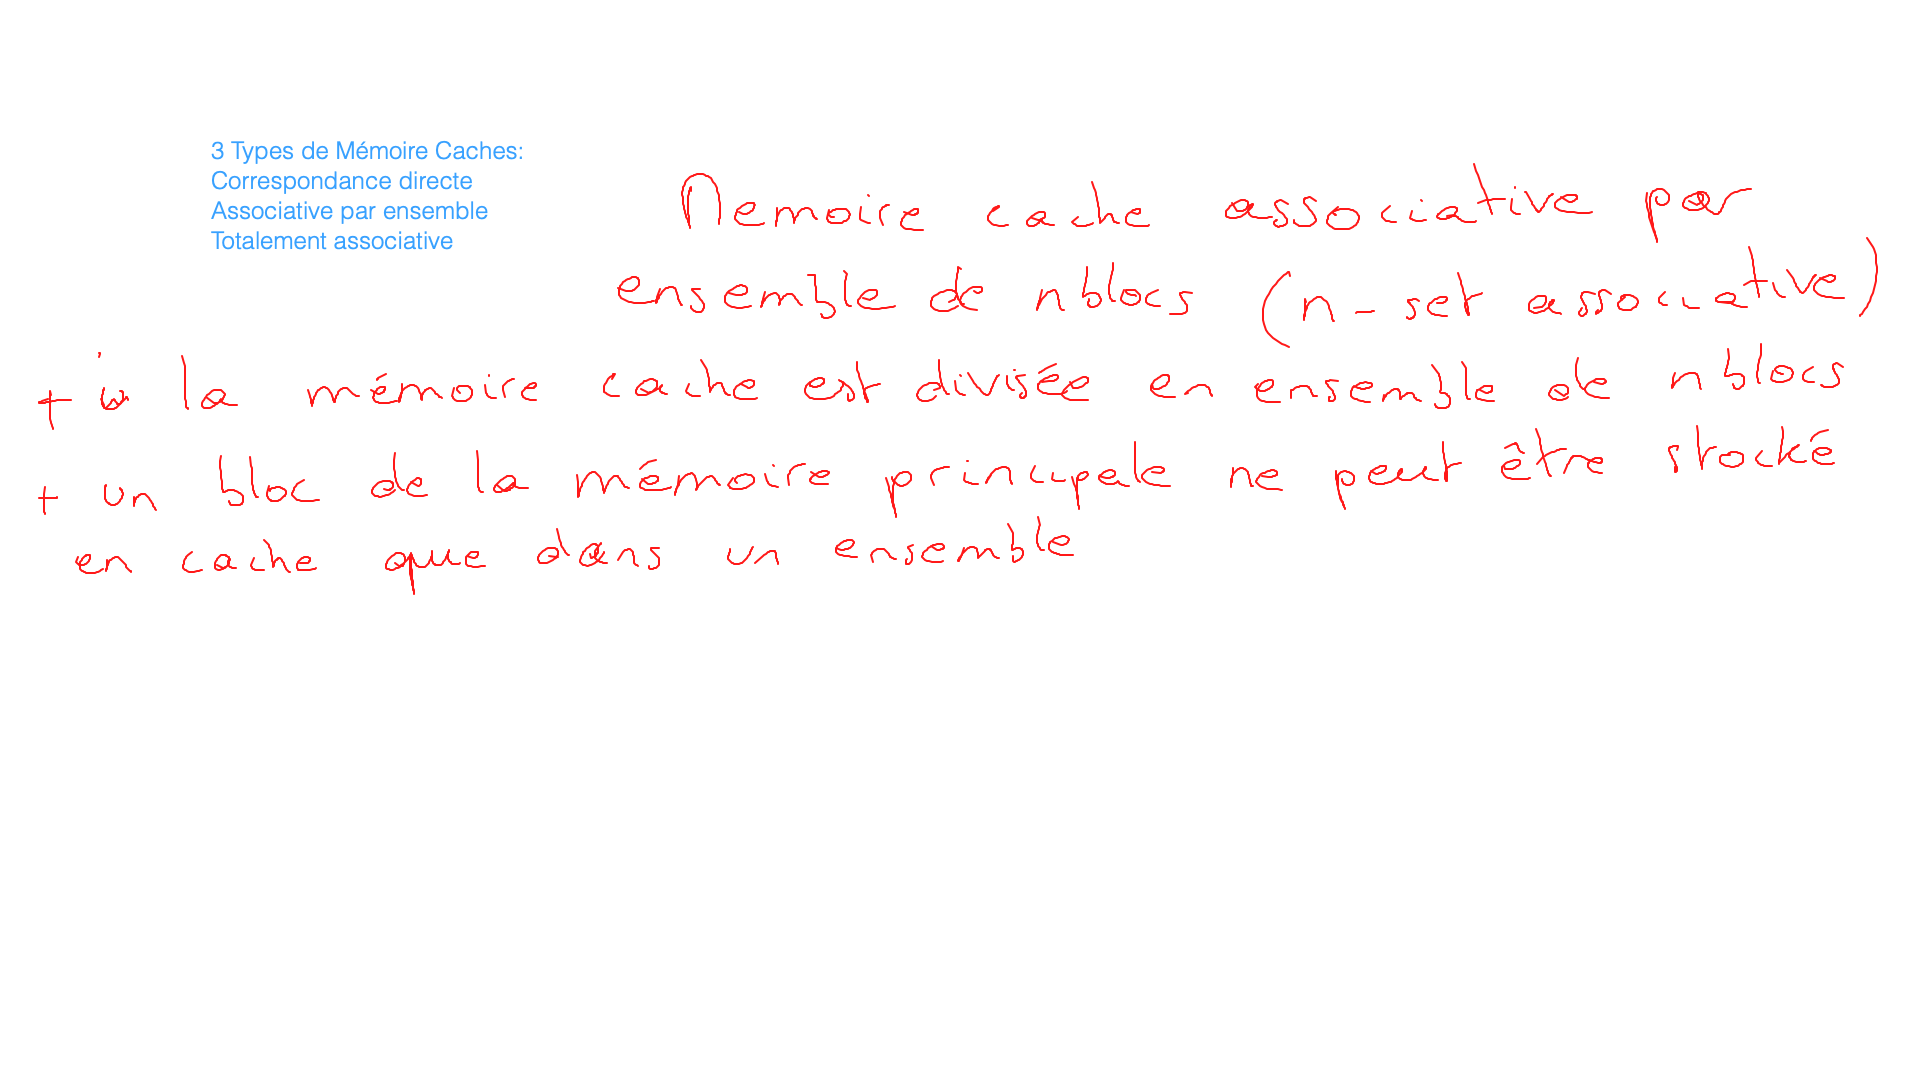 3 Types de Mémoire Caches:
Correspondance directe
Associative par ensemble
Totalement associative
Memoire cache associative par
ensemble de n blocs (n-set associative)
+ la mémoire cache est divisée en ensemble de n blocs
+ un bloc de la mémoire principale ne peut être stocké
en cache que dans un ensemble